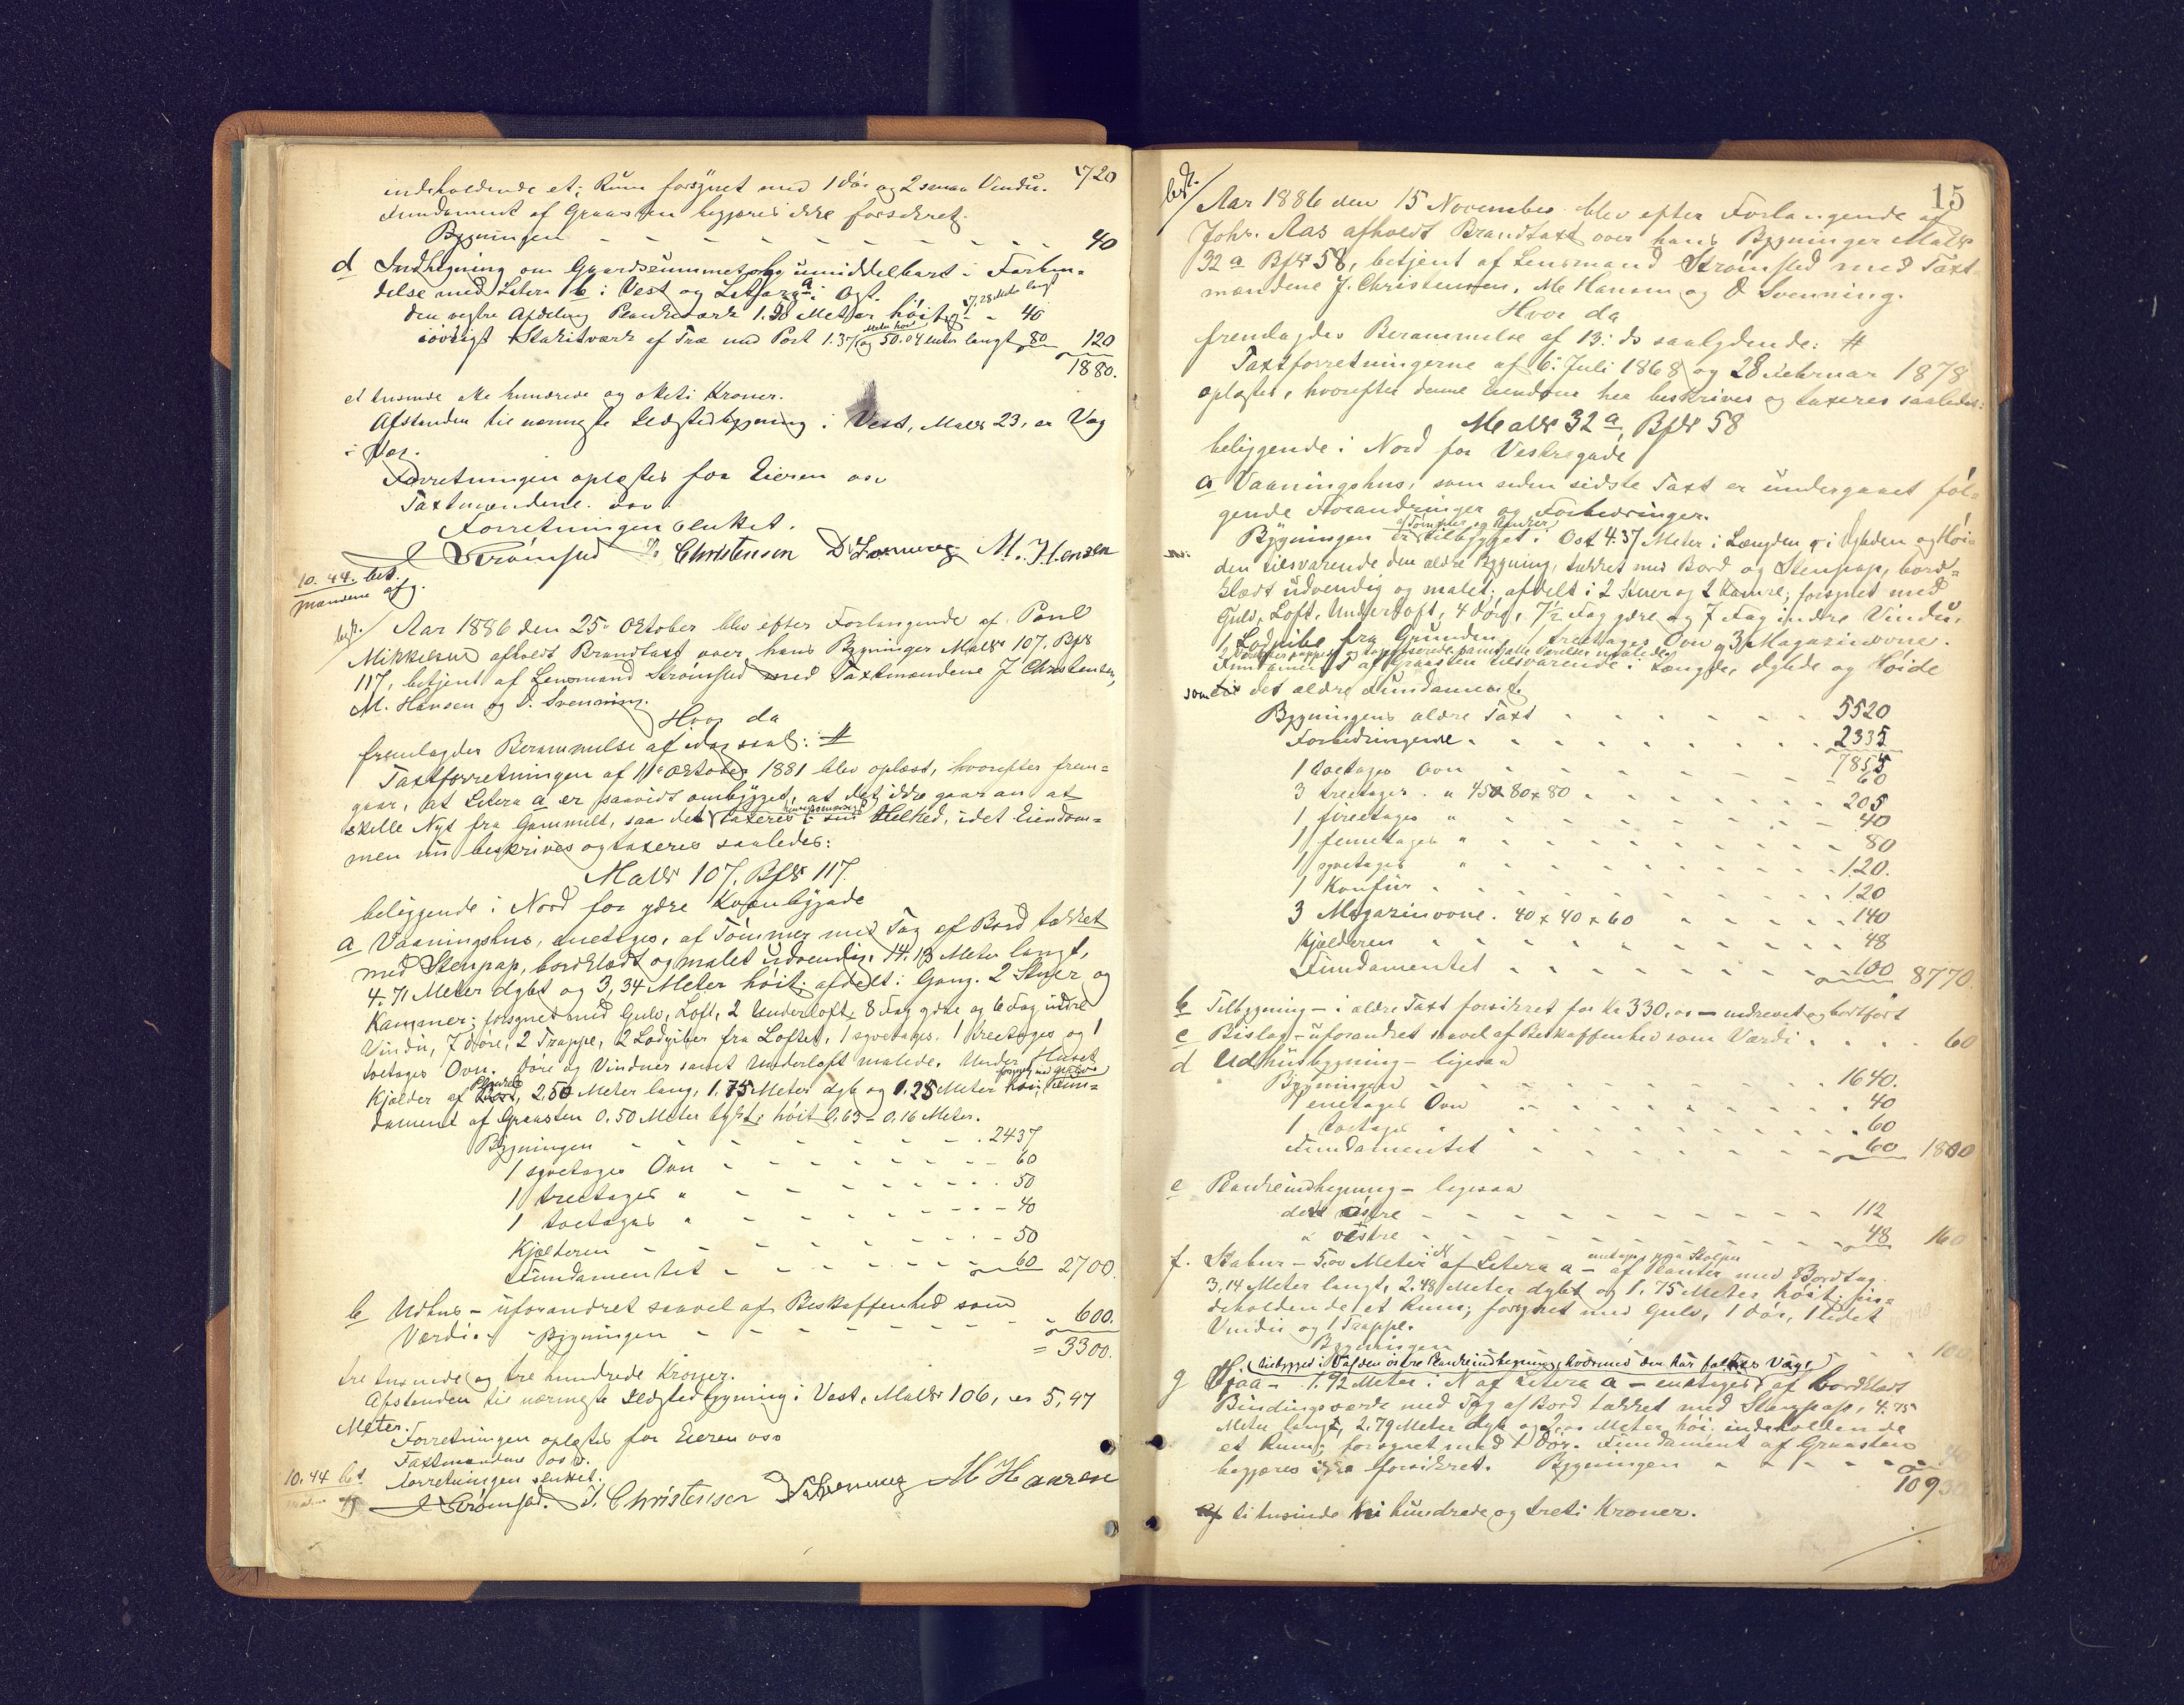 indeholdende et Rum forsynet med 1 Dör og 2 smaa Vindu. 1720
Fundament af Graasten begjæres ikke forsikret.
Bygningen - - - - - - - - - - 40
d Indhegning om Gaardsrummet og umiddelbart i Forbin-
delse med Litera b i Vest og Litera a i Ost.
den vestre Afdeling Plankeværk 1.98 Meter höit og 17.28 Meter langt - 40
iövrigt Stakitværk af Træ med Port 1.37 Meter höit og 50.04 Meter langt 80 120
1880.
et tusinde otte hundrede og otteti Kroner.
Afstanden til nærmeste Ildstedbygning i Vest, Mall№ 23, er Væg
i Væg.
Forretningen oplæstes for Eieren og
Taxtmændene.
Forretningen sluttet.
Strömsted J. Christensen D. Svenning M. Hansen
10.44. bet.
Mændene afg.
besk. Aar 1886 den 25 Oktober blev efter Forlangende af Paul
Mikkelsen afholdt Brandtaxt over hans Bygninger Mat№ 107. Bf№
117, betjent af Lensmand Strömsted med Taxtmændene J Christensen,
M. Hansen og D. Svenning.
Hvor da
fremlagdes Berammelse af idag saal: #
Taxtforretningen af 11 Oktober 1881 blev oplæst, hvorefter frem-
gaar, at Litera a er saavidt ombygget, at det ikke gaar an at
skille Nyt fra Gammelt, saa det taxeres i sin Helhed, idet Eiendom-
men nu beskrives og taxeres saaledes:
Mat№ 107. Bf№ 117.
beliggende i Nord for ydre Kvænbygade
a Vaaningshus, enetages, af Tömmer med Tag af Bord tækket
med Stenpap, bordklædt og malet udvendig. 14.13 Meter langt,
4.71 Meter dybt og 3,34 Meter höit; afdelt i Gang. 2 Stuer og
Kammer; forsynet med Gulv, Loft, 2 Underloft, 8 Fag ydre og 6 Fag indre
Vindu, 7 Döre, 2 Trappe, 2 Lodpiber fra Loftet, 1 syvetages. 1 treetages og 1
toetages Ovn. Döre og Vinduer samt Underloft malede. Under Huset
Kjælder af Planker, 2,50 Meter lang, 1.75 Meter dyb og 1.25 Meter höi, Fun-
dament af Graasten 0.50 Meter tykt, höit 0,63 - 0,16 Meter.
Bygningen - - - - - - - 2437
1 syvetages Ovn - - - - - - 60
1 treetages " - - - - - - 50
1 toetages " - - - - - - 40
Kjælderen - - - - - - 50
Fundamentet - - - - - - 60 2700.
b Udhus - uforandret saavel af Beskaffenhed som
Værdi. - Bygningen - - - - - - 600.
= 3300.
tre tusinde og tre hundrede Kroner.
Afstanden til nærmeste Ildstedbygning i Vest, Mat№ 106, er 5,47
Meter.
Forretningen oplæstes for Eieren og
Taxtmændene
Forretningen sluttet.
10.44 bet
Strömsted. J. Christensen D. Svenning M Hansen
15
besk. Aar 1886 den 15 November blev efter Forlangende af
Johs. Aas afholdt Brandtaxt over hans Bygninger Mat№
32 a Bf№ 58, betjent af Lensmand Strömsted med Taxt-
mændene J. Christensen, M. Hansen og D Svenning.
Hvor da
fremlagdes Berammelse af 13. ds saalydende: #
Taxtforretningerne af 6. Juli 1868 og 28 Februar 1878
oplæstes, hvorefter denne Eiendom her beskrives og taxeres saaledes:
Mat№ 32 a, Bf№ 58
beliggende i Nord for Vestregade
a Vaaningshus, som siden sidste Taxt er undergaaet föl-
gende Forandringer og Forbedringer.
Bygningen er af Tömmer og Planker tilbygget i Ost 4.37 Meter i Længden og i Dybden og Höi-
den tilsvarende den ældre Bygning, tækket med Bord og Stenpap, bord-
klædt udvendig og malet; afdelt i 2 Stuer og 2 Kamre; forsynet med
Gulv, Loft, Underloft, 4 Döre, 7½ Fag ydre og 7 Fag indre Vindu,
1 Lodpibe fra Grunden, 1 treetages Ovn og 3 Magazinovne.
Fundament af Graasten tilsvarende i Længde, Dybde og Höide
som det ældre Fundament.
Bygningens ældre Taxt - - - - - - 5520
Forbedringerne - - - - - - 2335
7855
1 toetages Ovn - - - - - - 60
3 treetages " 45 × 80 × 80 - - - - - 205
1 fireetages " - - - - - - 40
1 femetages " - - - - - - 80
1 syvetages " - - - - - - 120.
1 Komfur - - - - - - 120
3 Magazinovne. 40 × 40 × 60 - - - - 140
Kjælderen - - - - - - 48
Fundamentet - - - - - - 100 8770.
b Tilbygning - i ældre Taxt forsikret for Kr 330.00 - nedrevet og bortfört
c Bislag - uforandret saavel af Beskaffenhed som Værdi - - - 60
d Udhusbygning - ligesaa
Bygningen - - - - - - 1640.
1 enetages Ovn - - - - - - 40
1 toetages " - - - - - - 60
Fundamentet - - - - - - 60 1800
e Plankeindhegning - ligesaa
den östre - - - - - - 112
" vestre - - - - - - 48 160
f. Stabur - 5,00 Meter i N af Litera a - enetages paa Stolper af Planker med Bordtag
3,14 Meter langt, 2.48 Meter dybt og 1.75 Meter höit; in-
deholdende et Rum; forsynet med Gulv, 1 Dör, 1 lidet
Vindu og 1 Trappe.
Bygningen - - - 100
g (tilbygget i V af den östre Plankeindhegning, hvormed den har fælles Væg)
Sjaa - 1.92 Meter i N af Litera a - enetages, af bordklædt
Bindingsværk med Tag af Bord tækket med Stenpap, 4.75
Meter langt, 2.79 Meter dyb og 2,00 Meter höi; indeholdende
et Rum; forsynet med 1 Dör. Fundament af Graasten
begjæres ikke forsikret. Bygningen - - - - 40
10930
ti tusinde ni hundrede og treti Kroner.